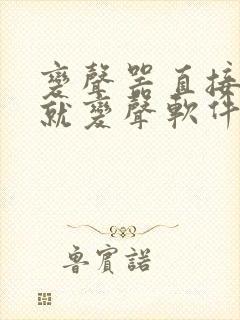 變聲器直接
就變聲軟件
魯賓諾